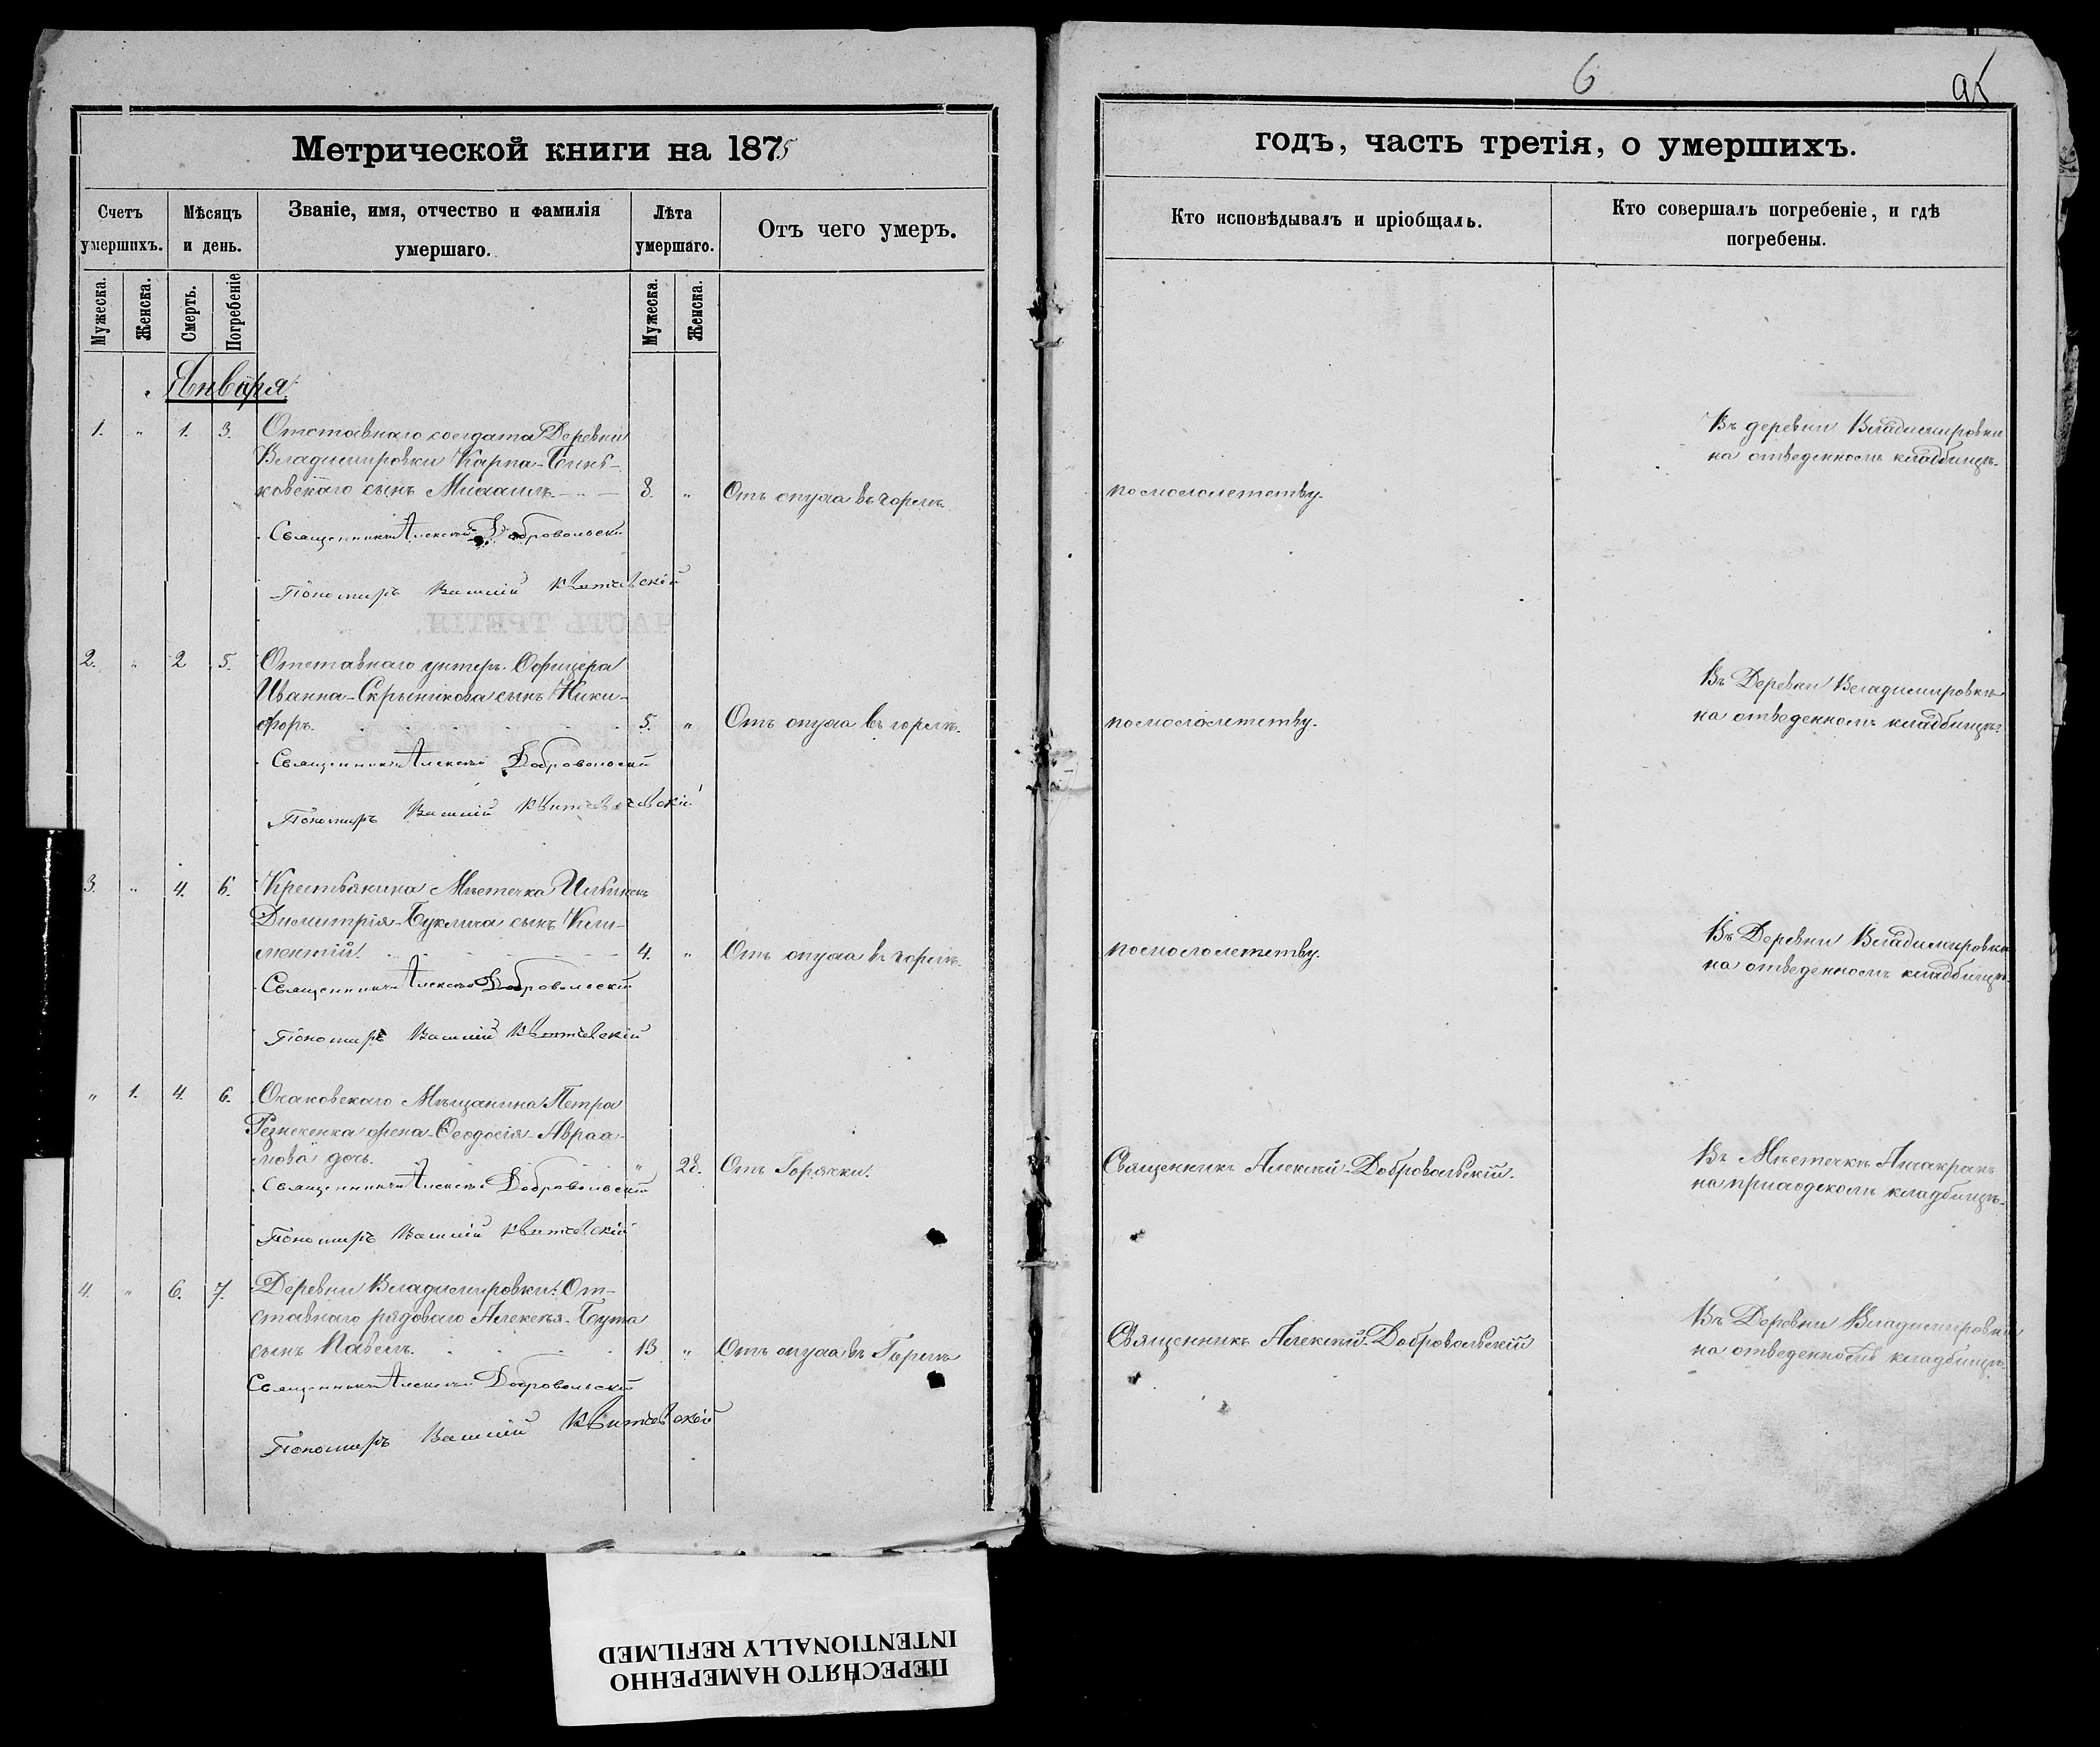 6
95
Метрической книги на 1875
годъ, часть третія, о умершихъ.
Счетъ умершихъ.
Мѣсяцъ и день.
Званіе, имя, отчество и фамилія умершаго.
Лѣта умершаго.
Отъ чего умеръ.
Кто исповѣдывалъ и пріобщалъ.
Кто совершалъ погребеніе, и гдѣ погребены.
Мужеска.
Женска.
Смерть.
Погребеніе
Мужеска.
Женска.
Января.
1. " 1. 3. Отставнаго солдата Деревни
Владимировки Карпа
сынъ Михаилъ 8. " Отъ опуха въ горлѣ помололетству.
Въ деревни Владимировки
на отведенномъ кладбищѣ.
Священникъ Алексѣй Добровольскій
Пономарь Василій Квитчевскій
2. " 2 5. Отставнаго унтеръ-Офицера
Ивана Скрыникова сынъ Ники-
форъ. 5. " Отъ опуха въ горлѣ. помололетству.
Въ Деревни Владимировкѣ
на отведенномъ кладбищѣ.
Священникъ Алексѣй Добровольскій
Пономарь Василій
3. " 4. 6. Крестьянина Мѣстечка
Димитрія сынъ Кли-
ментій. 4. " Отъ опуха въ горлѣ. помололетству.
Въ Деревни Владимировки
на отведенномъ кладбищѣ.
Священникъ Алексѣй Добровольскій
Пономарь Василій Квитчевскій
" 1. 4. 6. Очаковскаго Мѣщанина Петра
Резниченка жена Феодосія Авраа-
мова дочь. " 28. Отъ Горячки. Священникъ Алексѣй Добровольскій.
Въ Мѣстечкѣ Анчакракъ
на приходскомъ кладбищѣ.
Священникъ Алексѣй Добровольскій
Пономарь Василій Квитчевскій
4. " 6. 7. Деревни Владимировки От-
ставнаго рядоваго Алексѣя Бута
сынъ Павелъ. 13 " Отъ опуха въ Горлѣ Священникъ Алексѣй Добровольскій
Въ Деревни Владимировки
на отведенномъ кладбищѣ.
Священникъ Алексѣй Добровольскій
Пономарь Василій Квитчевскій
ПЕРЕСНЯТО НАМЕРЕННО
INTENTIONALLY REFILMED